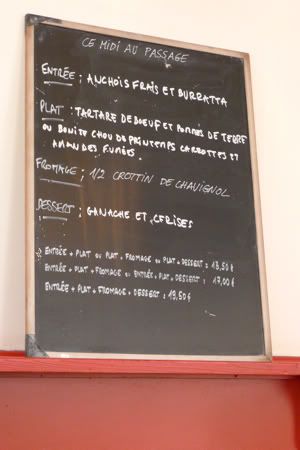 CE MIDI AU PASSAGE
ENTRÉE : ANCHOIS FRAIS ET BURRATTA
PLAT : TARTARE DE BOEUF ET POMMES DE TERRE
OU BONITE CHOU DE PRINTEMPS CARROTTES ET
AMANDES FUMÉES.
FROMAGE : 1/2 CROTTIN DE CHAVIGNOL
DESSERT : GANACHE ET CERISES
ENTRÉE + PLAT OU PLAT + FROMAGE OU PLAT + DESSERT : 13,50 €
ENTRÉE + PLAT + FROMAGE OU ENTRÉE + PLAT + DESSERT : 17,00 €
ENTRÉE + PLAT + FROMAGE + DESSERT : 19,50 €